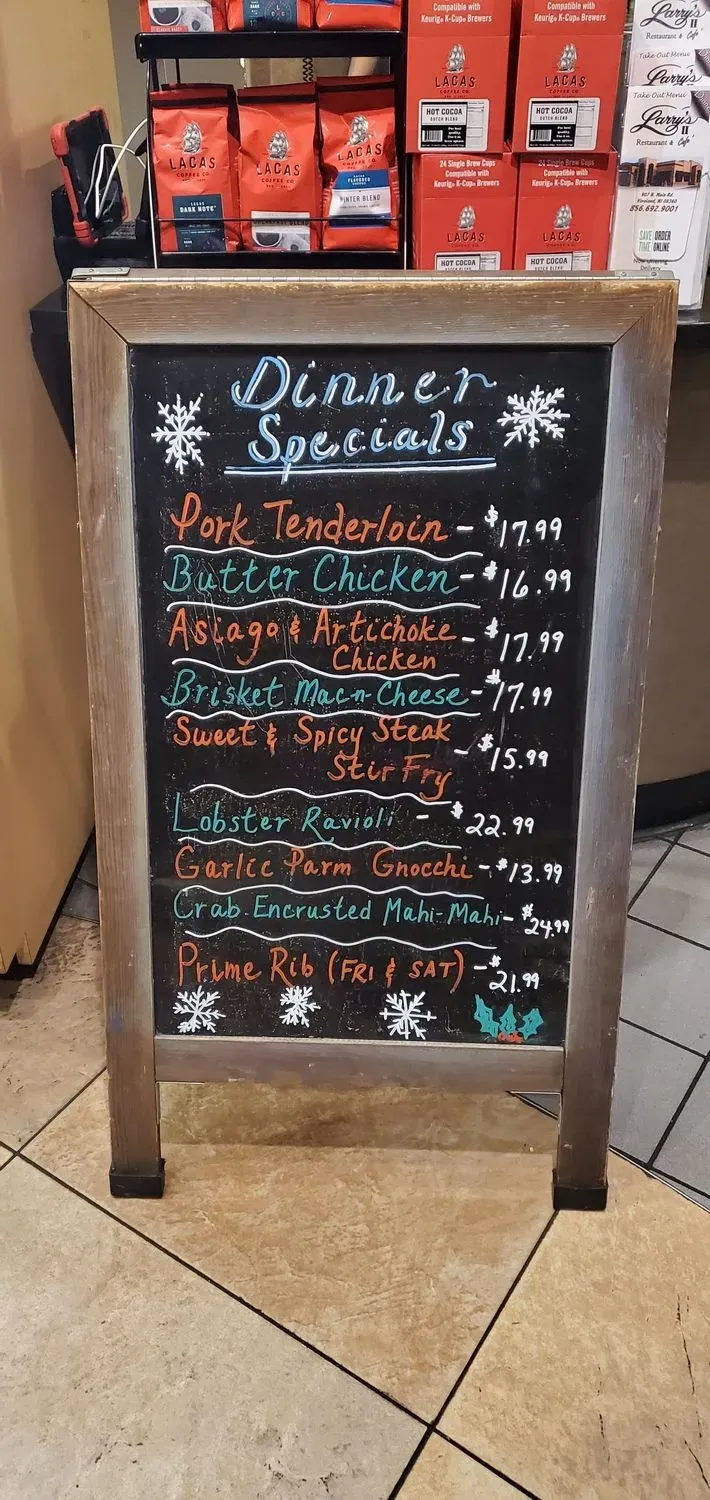 Compatible with
Keurig® K-Cup® Brewers
Compatible with
Keurig® K-Cup® Brewers
LACAS
COFFEE CO.
HOT COCOA
DUTCH BLEND
LACAS
COFFEE CO.
HOT COCOA
DUTCH BLEND
24 Single Brew Cups
Compatible with
Keurig® K-Cup® Brewers
LACAS
HOT COCOA
24 Single Brew Cups
Compatible with
Keurig® K-Cup® Brewers
LACAS
HOT COCOA
LACAS
COFFEE CO.
LACAS
DARK NOTE
LACAS
COFFEE CO.
BREAKFAST BLEND
LACAS
COFFEE CO.
FLAVORED
WINTER BLEND
Larry's
II
Restaurant & Cafe
Take Out Menu
Larry's
Take Out Menu
Larry's
II
Restaurant & Cafe
907 N. Main Rd.
Vineland, NJ 08360
856.692.9001
SAVE ORDER
TIME ONLINE
Now Offering
Delivery
Dinner
Specials
Pork Tenderloin - $17.99
Butter Chicken - $16.99
Asiago & Artichoke - $17.99
Chicken
Brisket Mac-n-Cheese - $17.99
Sweet & Spicy Steak
Stir Fry - $15.99
Lobster Ravioli - $22.99
Garlic Parm Gnocchi - $13.99
Crab Encrusted Mahi-Mahi - $24.99
Prime Rib (FRI & SAT) - $21.99